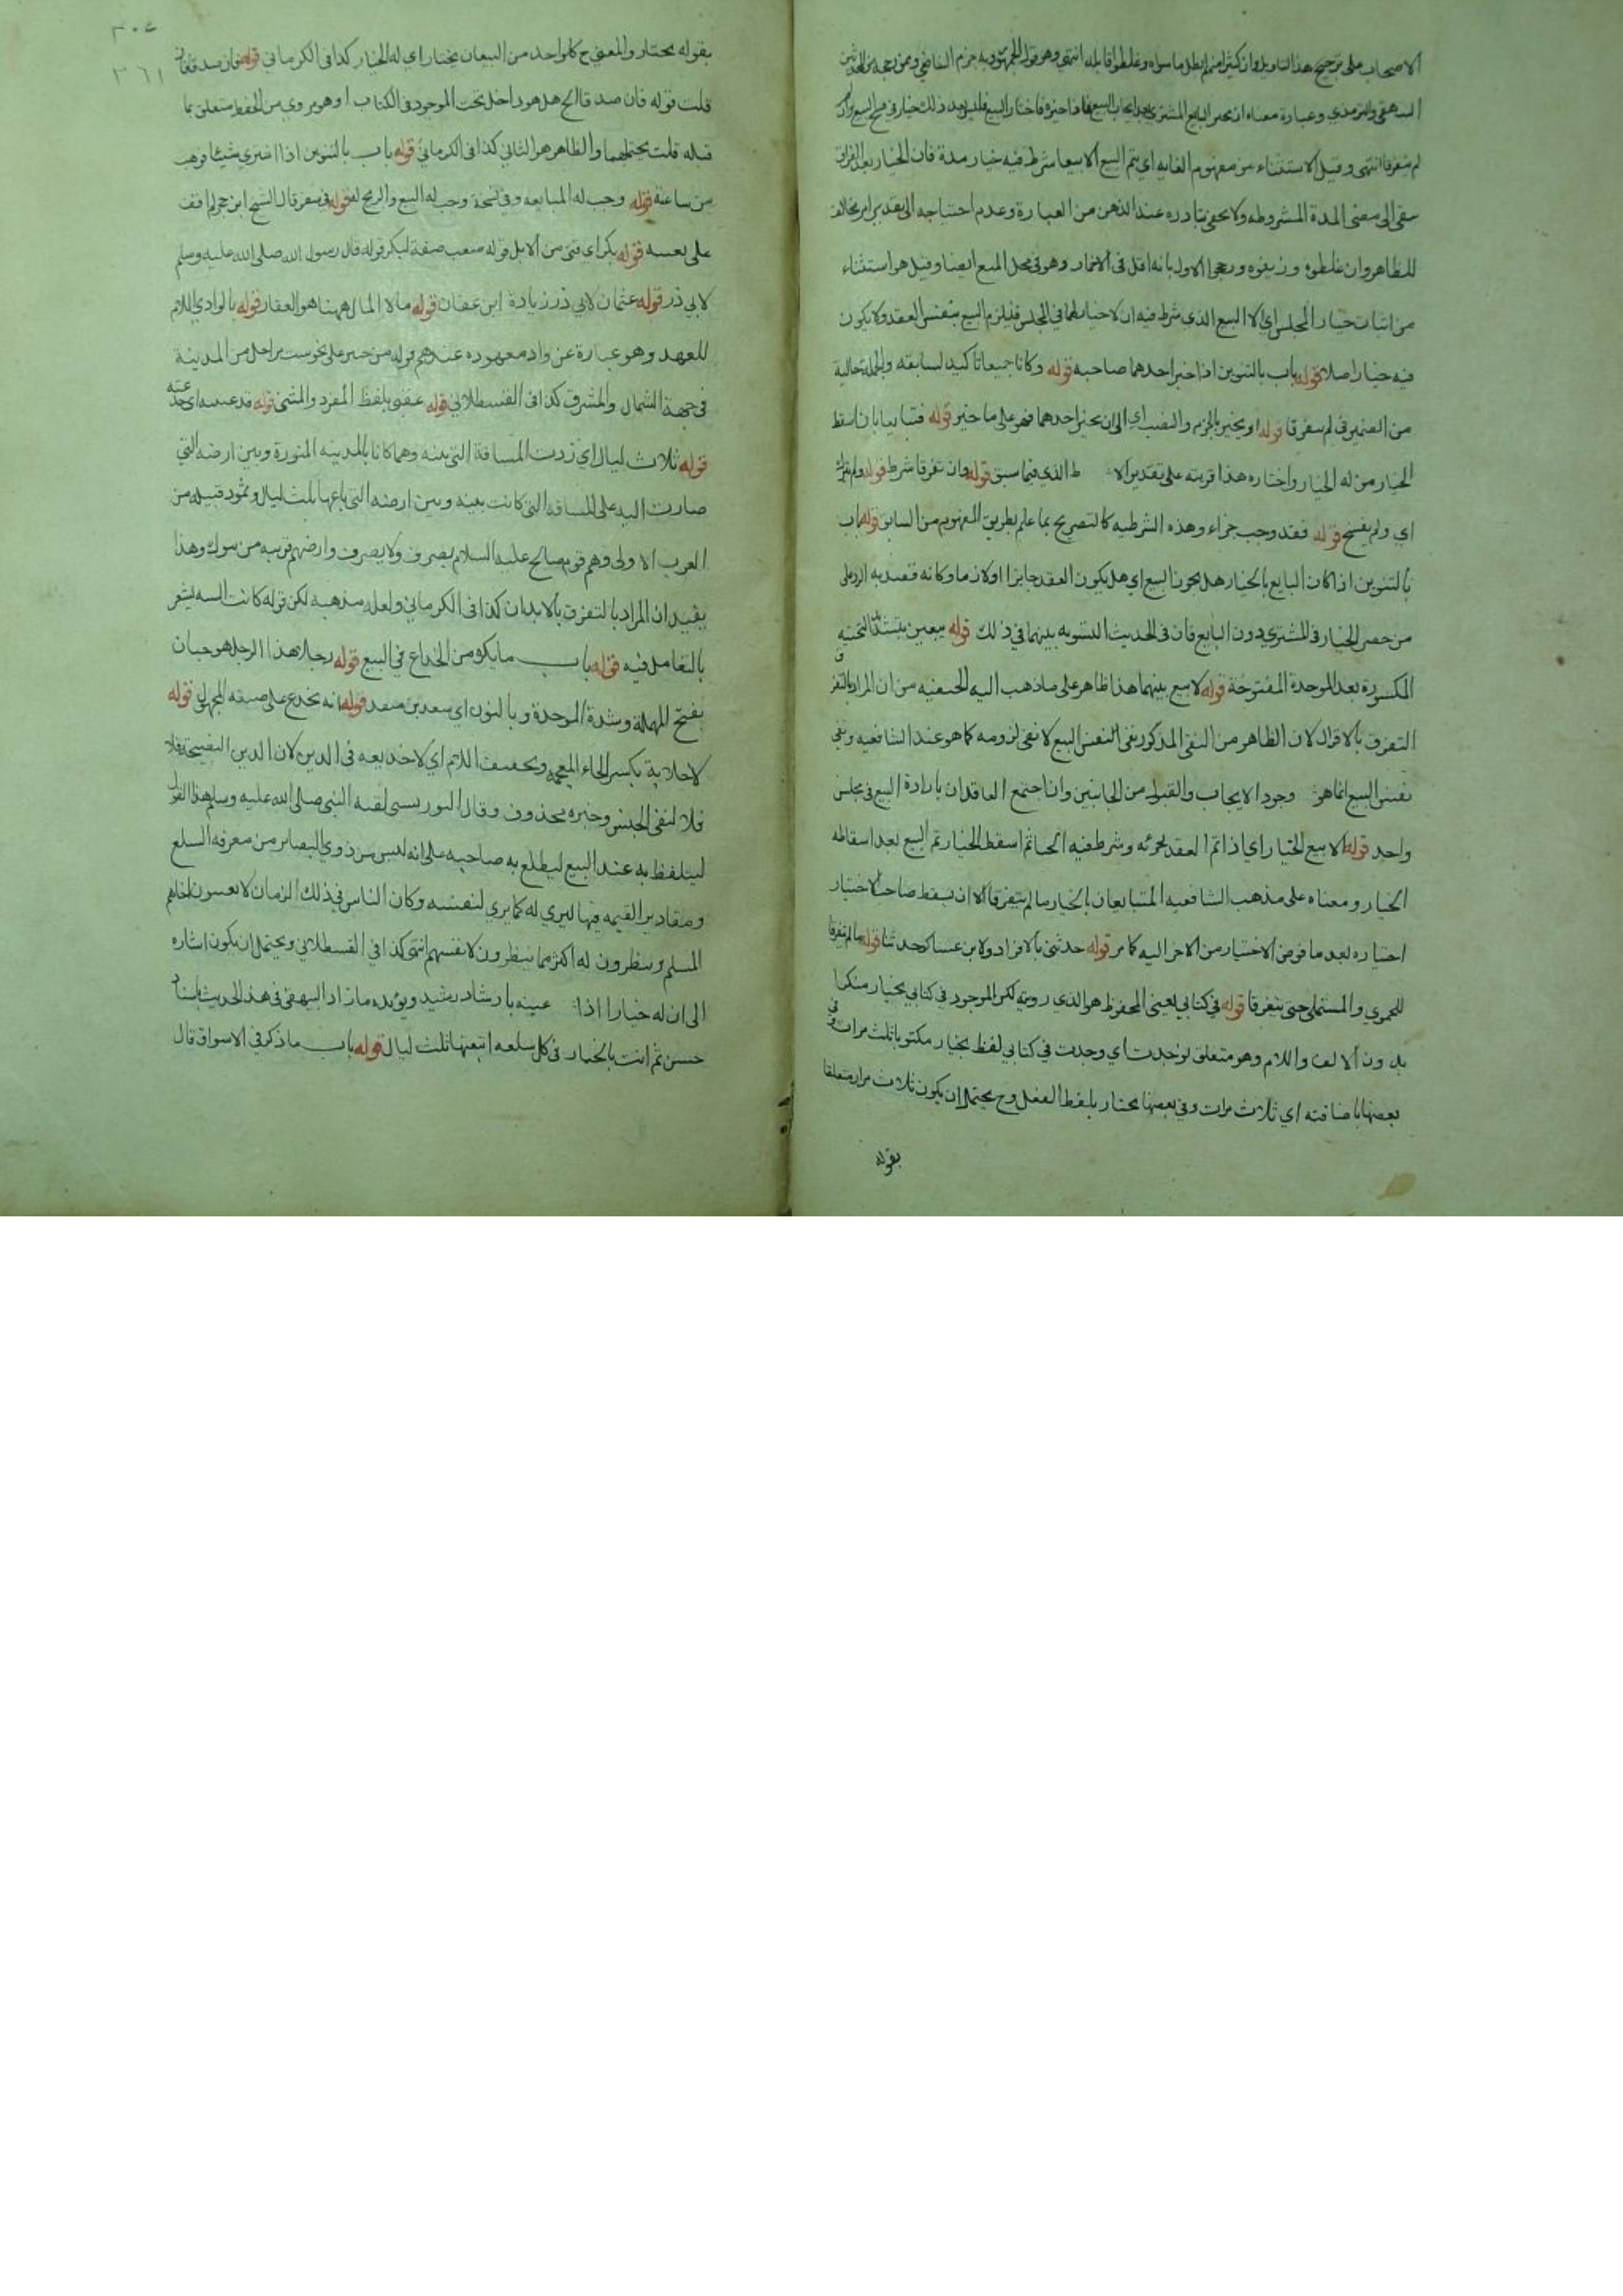 الاصحاب على ترجيح هذا التاويل وان كثيرا منهم ابطل ما سواه وغلطوا قايله انتهى وهو قول الجمهور وبه جزم الشافعي وممن رجحه من المحدثين
البيهقي والترمذي وعبارة معناه ان يخير البايع المشتري بعد ايجاب البيع فاذا خيره فاختار البيع فليس بعد ذلك خيار في فسخ البيع وان
لم يتفرقا انتهى وقيل الاستثناء من مفهوم الغايه اي يتم البيع الا بيعا شرط فيه خيار مدة فان الخيار بعد التفرق
يبقى الى مضى المدة المشروطه ولا يخفى تبادره عند الذهن من العبارة وعدم احتياجه الى تقدير امر مخالف
للظاهر وان غلطوه وزيفوه ورجح الاول بانه اقل في الاضمار وهو في محل المنع ايضا وقيل هو استثناء
من اثبات خيار المجلس اي الا البيع الذي شرط فيه ان لا خيار لهما في المجلس فيلزم البيع بنفس العقد ولا يكون
فيه خيار اصلا قوله باب بالتنوين اذا خير احدهما صاحبه قوله وكانا جميعا تاكيد لسابقه والجملة حالية
من الضمير في لم يتفرقا قوله او يخير بالجزم والنصب اي الى ان يخير احدهما فهو على ما خير قوله فتبايعا بان اسقط
الخيار من له الخيار واختاره هذا قرينه على تقدير الا ط الذي فيما سبق قوله وان تفرقا شرط قوله ولم يترك
اي ولم يفسخ قوله فقد وجب جزاء وهذه الشرطيه كالتصريح بما علم بطريق المفهوم من السابق قوله باب
بالتنوين اذا كان البايع بالخيار هل يجوز البيع اي هل يكون العقد جايزا اولا وكانه قصد به الرد على
من حصر الخيار في المشتري دون البايع فان في الحديث التسويه بينهما في ذلك قوله بيعين بتشديد التحتيه
المكسورة بعد الموحدة المفتوحة قوله لا بيع بينهما هذا ظاهر على ما ذهب اليه الحنفيه من ان المراد بالتفرق
التفرق بالاقوال لان الظاهر من النفى المذكور نفى النفس البيع لا نفى لزومه كما هو عند الشافعيه ونفى
نفس البيع انما هو وجود الايجاب والقبول من الجانبين وان اجتمع العاقدان بارادة البيع في مجلس
واحد قوله الا بيع الخيار اي اذا تم العقد بجزئه وشرط فيه الخيار ثم اسقط الخيار تم البيع بعد اسقاطه
الخيار ومعناه على مذهب الشافعيه المتبايعان بالخيار ما لم يتفرقا الا ان يسقط صاحب الاختيار
اختياره بعد ما فوض الاختيار من الاخر اليه كما مر قوله حدثني بالافراد ولابن عساكر حدثنا قوله ما لم يتفرقا
للحموي والمستملى حتى يتفرقا قوله في كتابي يعني المحفوظ هو الذي رويته لكن الموجود في كتابي بخيار منكرا
بدون الالف واللام وهو متعلق لوجدت اي وجدت في كتابي لفظ بخيار مكتوبا ثلث مرات وفي
بعضها باضافته اي ثلاث مرات وفي بعضها يختار بلفظ الفعل وح يحتمل ان يكون ثلاث مرار متعلقا
بقوله
٣٠٤
٣٦١
بقوله يختار والمعنى ح كل واحد من البيعان يختار اي له الخيار كذا في الكرماني قوله فان صدقا فان
قلت قوله فان صدقا الخ هل هو داخل تحت الموجود في الكتاب او هو مروي من الحفظ متعلق بما
قبله قلت يحتملهما والظاهر هو الثاني كذا في الكرماني قوله باب بالتنوين اذا اشترى شيئا فوهب
من ساعته قوله وجب له المبايعه وفي نسخة وجب له البيع والربح له قوله في سفر قال الشيخ ابن حجر لم اقف
على تعيينه قوله بكر اي فتى من الابل قوله صعب صفة لبكر قوله قال رسول الله صلى الله عليه وسلم
لابي ذر قوله عثمان لابي ذر زيادة ابن عفان قوله مالا المال ههنا هو العقار قوله بالوادي اللام
للعهد وهو عبارة عن واد معهوده عندهم قوله من خيبر على نحو ست مراحل من المدينة
في جهة الشمال والمشرق كذا في القسطلاني قوله عقبى بلفظ المفرد والمثنى قوله قد غبنته اي خدعته
قوله ثلاث ليال اي زدت المسافة التي بينه وهما كانا بالمدينه المنورة وبين ارضه التي
صارت اليه على المسافه التي كانت بينه وبين ارضه التي باعها بثلث ليال وثمود قبيله من
العرب الاولى وهم قوم صالح عليه السلام يصرف ولا يصرف وارضهم قريبه من تبوك وهذا
يفيد ان المراد بالتفرق بالابدان كذا في الكرماني ولعله مذهبه لكن قوله كانت السنه يشعر
بالتعامل فيه قوله باب ما يكره من الخداع في البيع قوله رجلا هذا الرجل هو حبان
بفتح المهملة وشدة الموحدة وبالنون اي سعد بن منقذ قوله انه يخدع على صيغه المجهول قوله
لا خلابة بكسر الخاء المعجمه وتخفيف اللام اي لا خديعه في الدين لان الدين النصيحة فلا
فلا لنفى الجنس وخبره محذوف وقال التوربشتى لقنه النبي صلى الله عليه وسلم هذا القول
ليتلفظ به عند البيع ليطلع به صاحبه على انه ليس من ذوي البصائر من معرفه السلع
ومقادير القيمه فيها ليرى له كما يرى لنفسه وكان الناس في ذلك الزمان لا يغبنون اخاهم
المسلم وينظرون له اكثر مما ينظرون لانفسهم انتهى كذا في القسطلاني ويحتمل ان يكون اشاره
الى ان له خيارا اذا غبنه بارشاد رشيد ويؤيده ما زاد البيهقي في هذا الحديث باسناد
حسن ثم انت بالخيار في كل سلعه ابتعتها ثلث ليال قوله باب ما ذكر في الاسواق قال